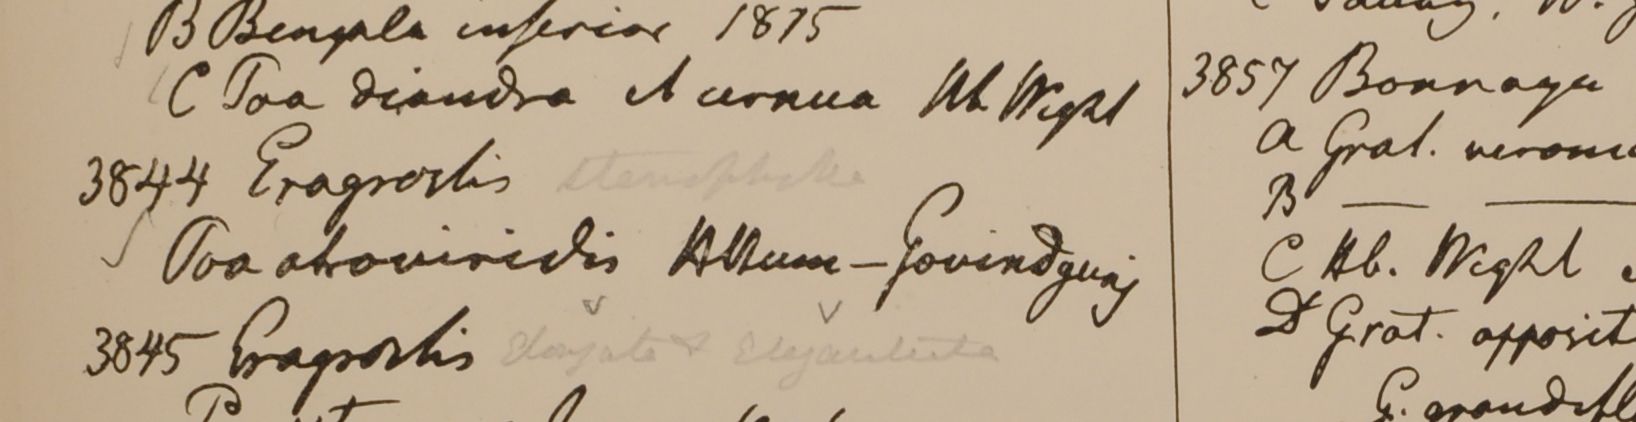 B Bengala inferior 1815
C Poa diandra et cernua Hb. Wight
3844 Eragrostis stenophylla
Poa atroviridis HBHam - Govindgunj
3845 Eragrostis elongata & elegantula
3857 Bonnaya
A Grat.
B
C Hb. Wight
D Grat. opposit
G. grandifl